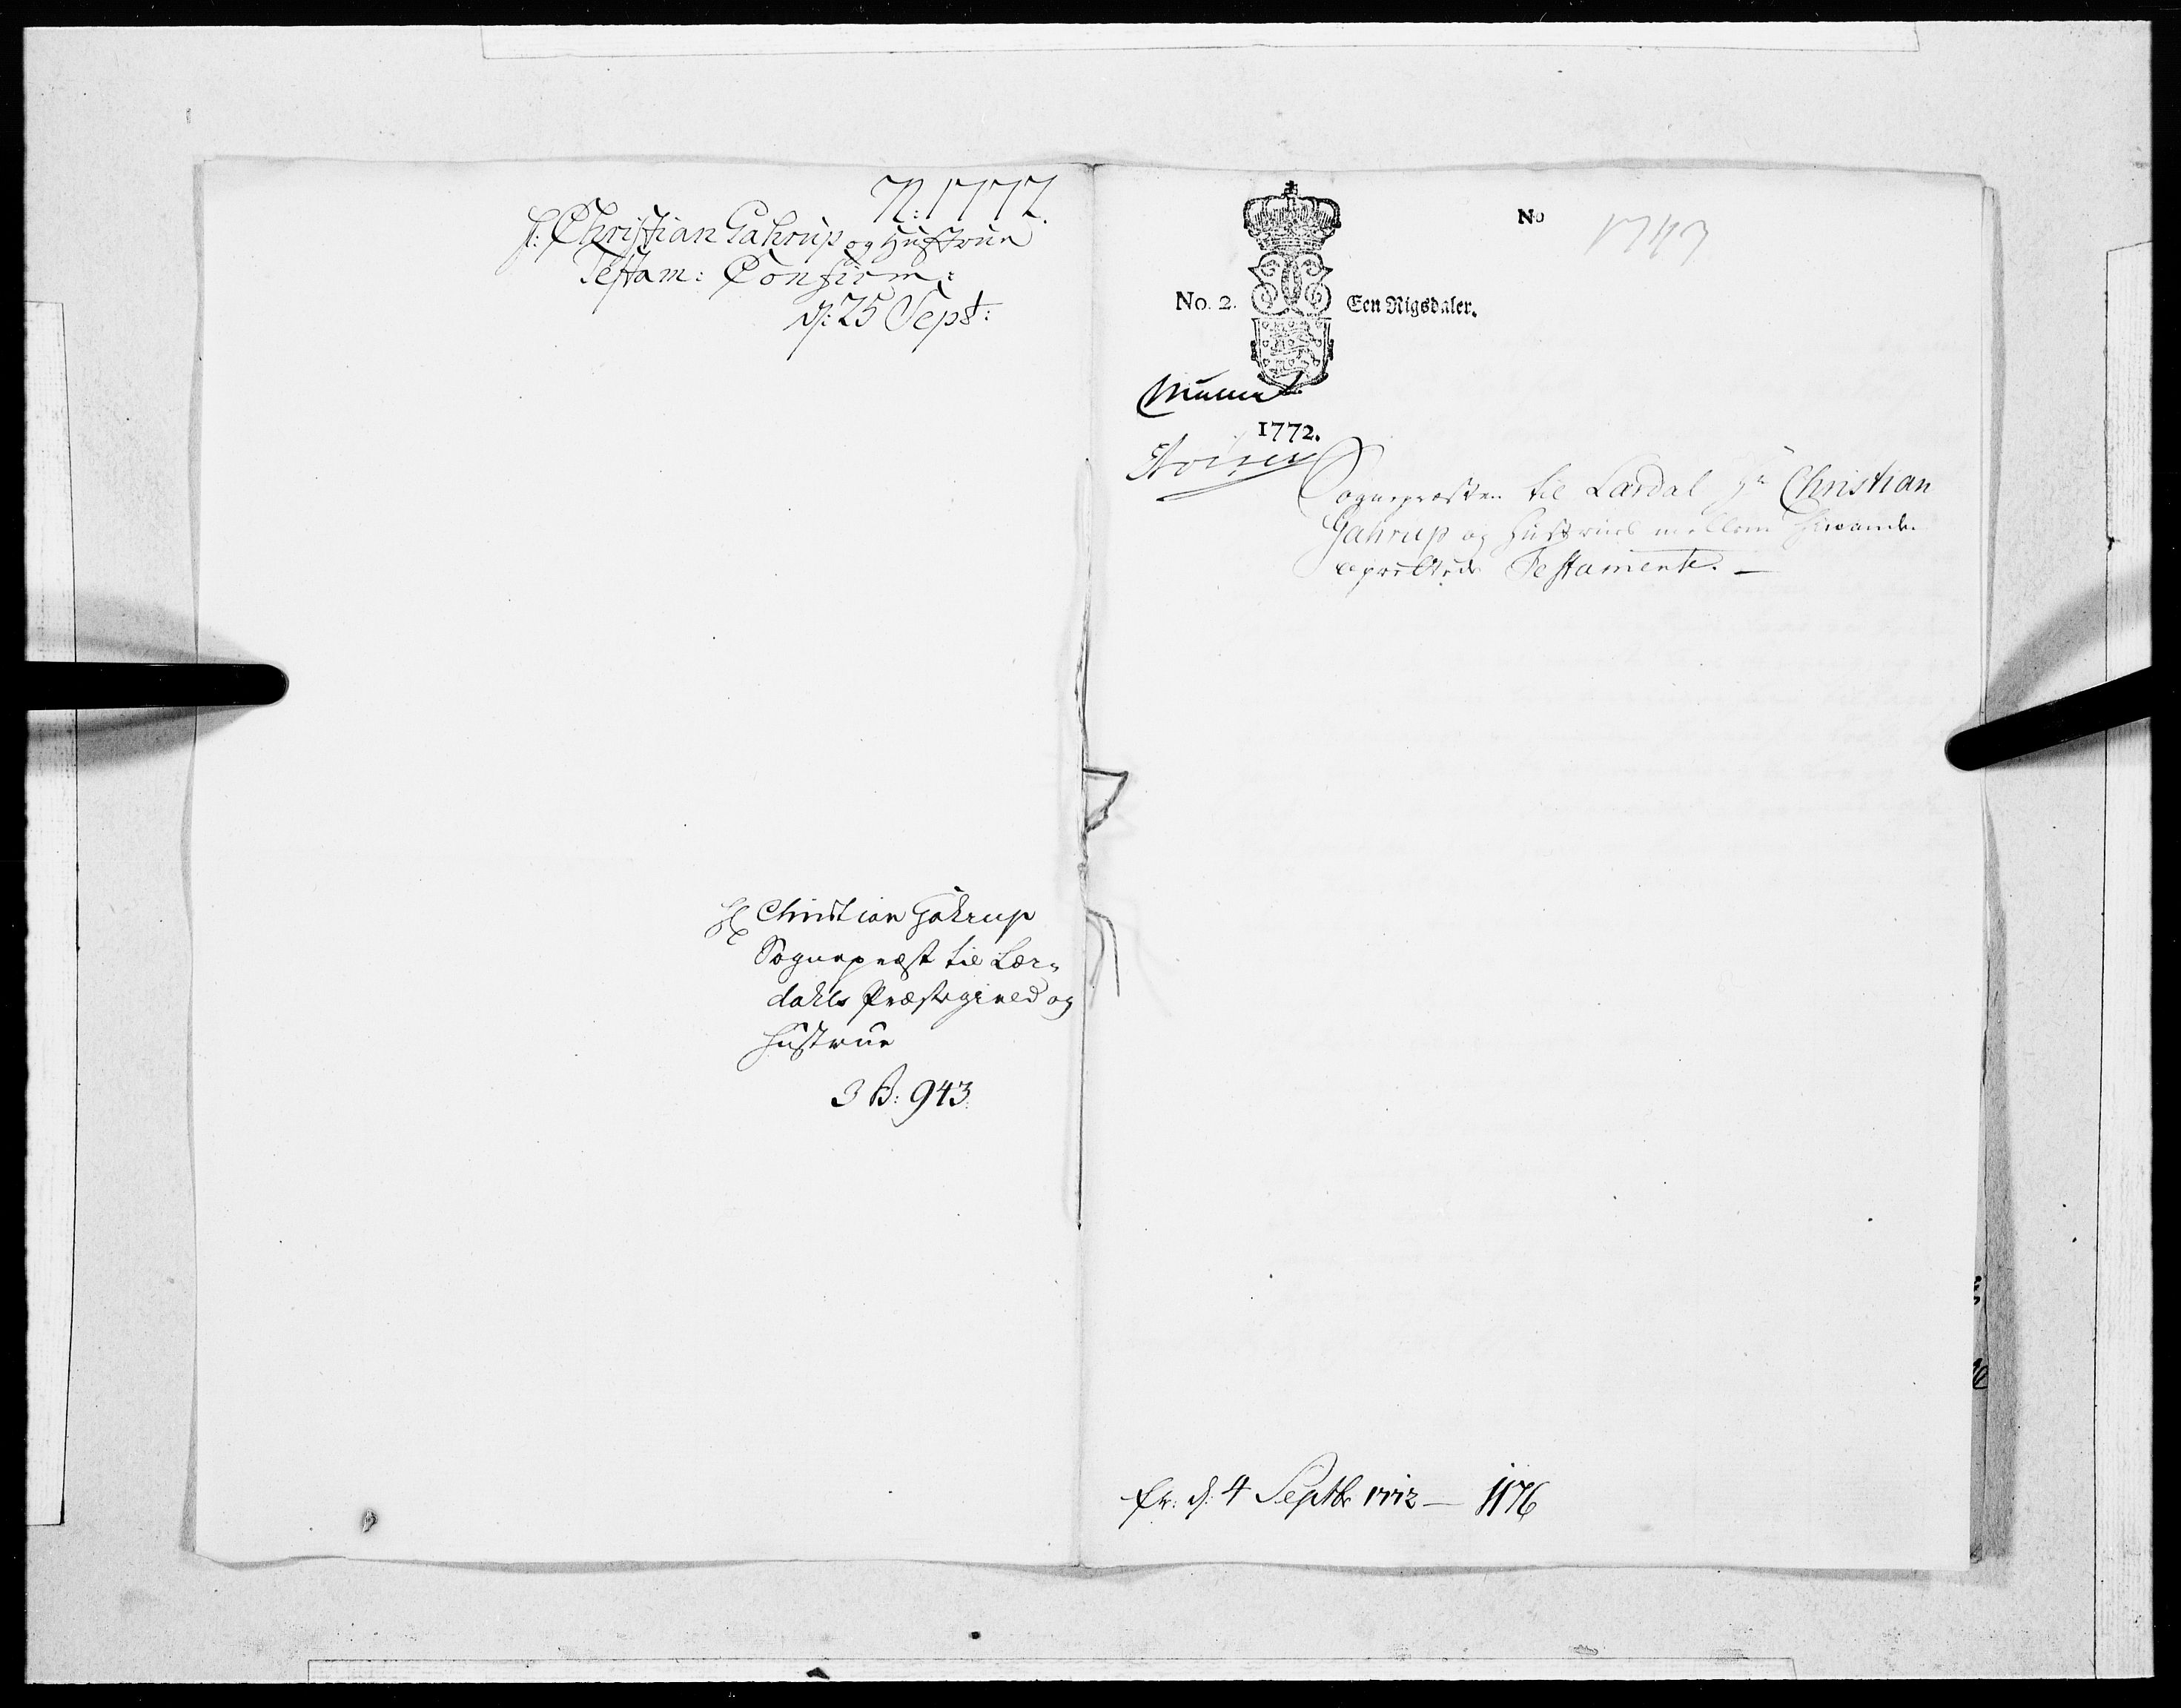 N: 1772.
H: Christian Gahrup og Hustrue
Testam: Confirm:
d: 25 Sept:
Hr Christian Gahrup
Sognepræst til Lær-
dahls Præstegield og
Hustrue
3 B: 943.
No
No. 2. Een Rigsdaler.
1772.
Sognepræsten til Lærdal Hr Christian
Gahrup og Hustrues mellem hinanden
oprettede Testamente. —
d: 4 Septbr 1772 — 1176